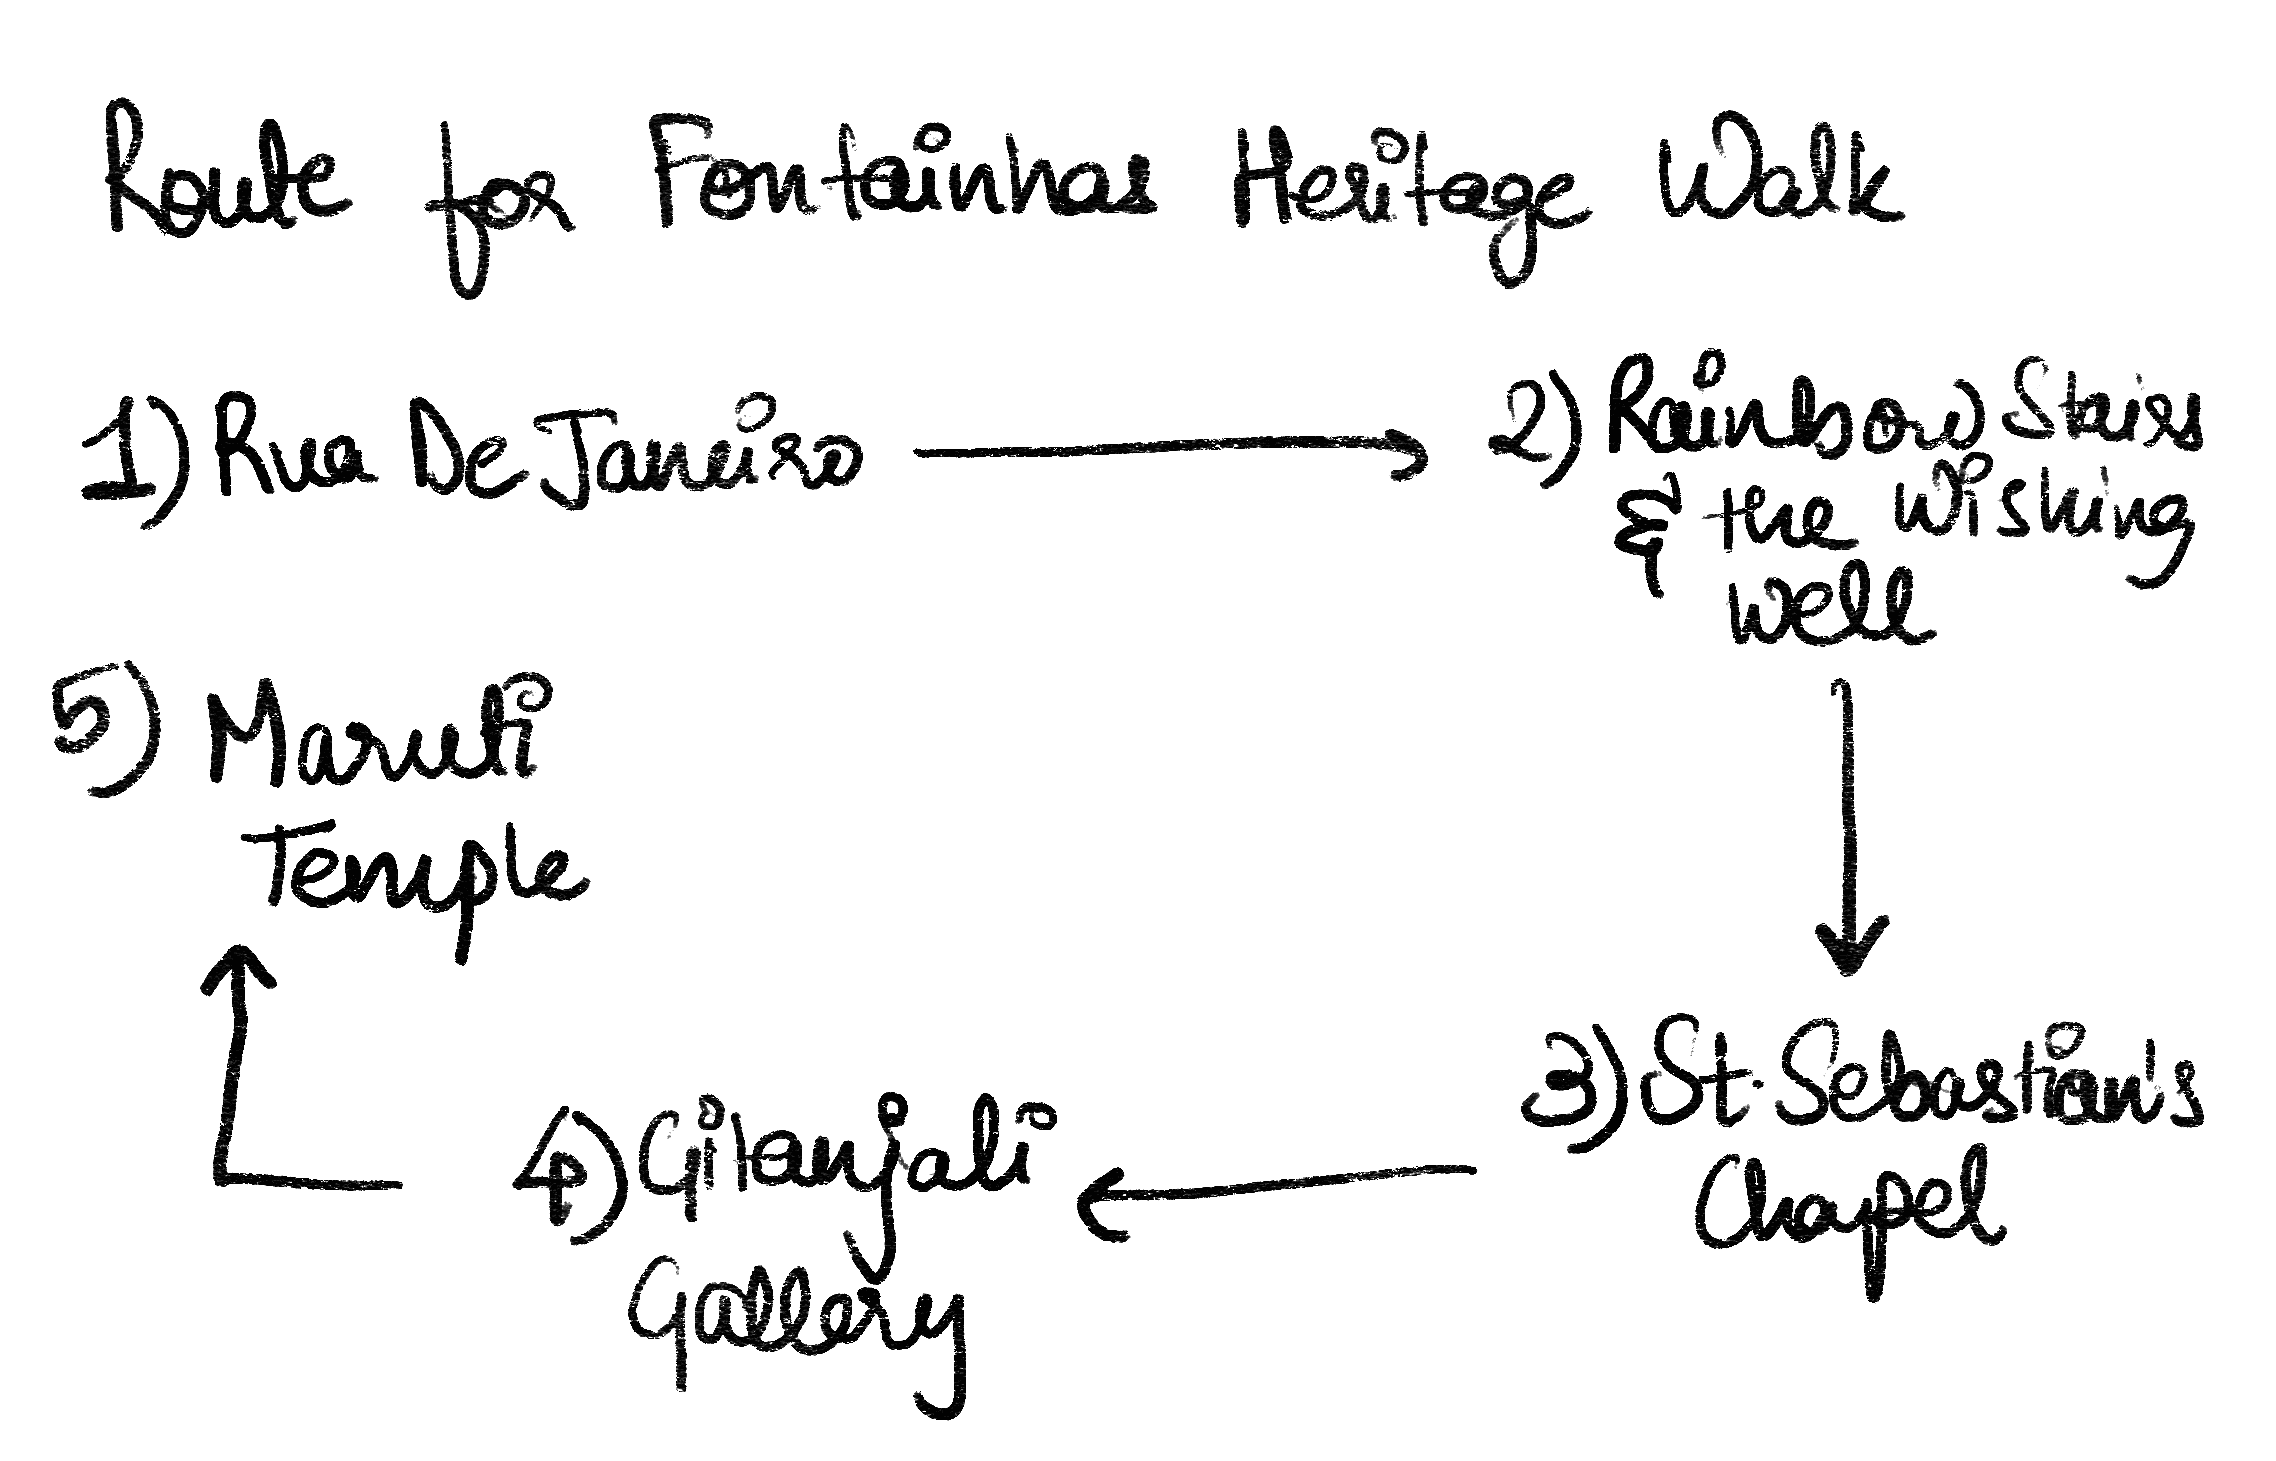 Route for Fontainhas Heritage Walk
1) Rua De Janeiro
2) Rainbow Stairs
& the Wishing
Well
3) St. Sebastian's
Chapel
4) Gitanjali
Gallery
5) Maruti
Temple